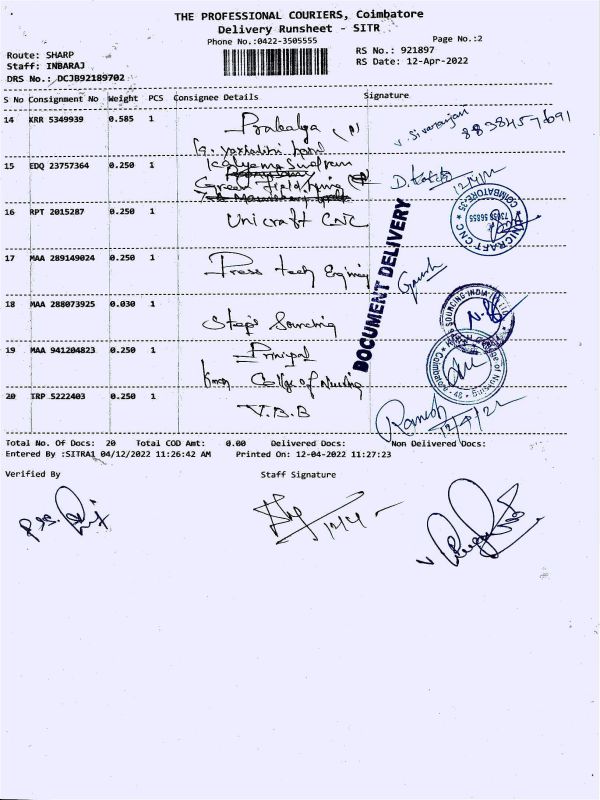 THE PROFESSIONAL COURIERS, Coimbatore
Delivery Runsheet - SITR
Phone No.:0422-3505555
Page No.:2
Route: SHARP
Staff: INBARAJ
DRS No.: DCJB92189702
RS No.: 921897
RS Date: 12-Apr-2022
S No Consignment No Weight PCS Consignee Details Signature
14 KRR 5349939 0.585 1 Prabalya
V. Sivaranjani 8838457691
15 EDQ 23757364 0.250 1 Kalyana Sundram
Green field
16 RPT 2015287 0.250 1 Unicraft CNC
UNICRAFT CNC COIMBATORE-35
17 MAA 289149024 0.250 1 Press tech
DOCUMENT DELIVERY
18 MAA 288073925 0.030 1 Steps Sourcing
SOURCING INDIA
19 MAA 941204823 0.250 1 Principal
College of Nursing
20 IRP 5222403 0.250 1 V.B.B
Ramesh
12/4/22
Total No. Of Docs: 20 Total COD Amt: 0.00 Delivered Docs: Non Delivered Docs:
Entered By :SITRA1 04/12/2022 11:26:42 AM Printed On: 12-04-2022 11:27:23
Verified By Staff Signature